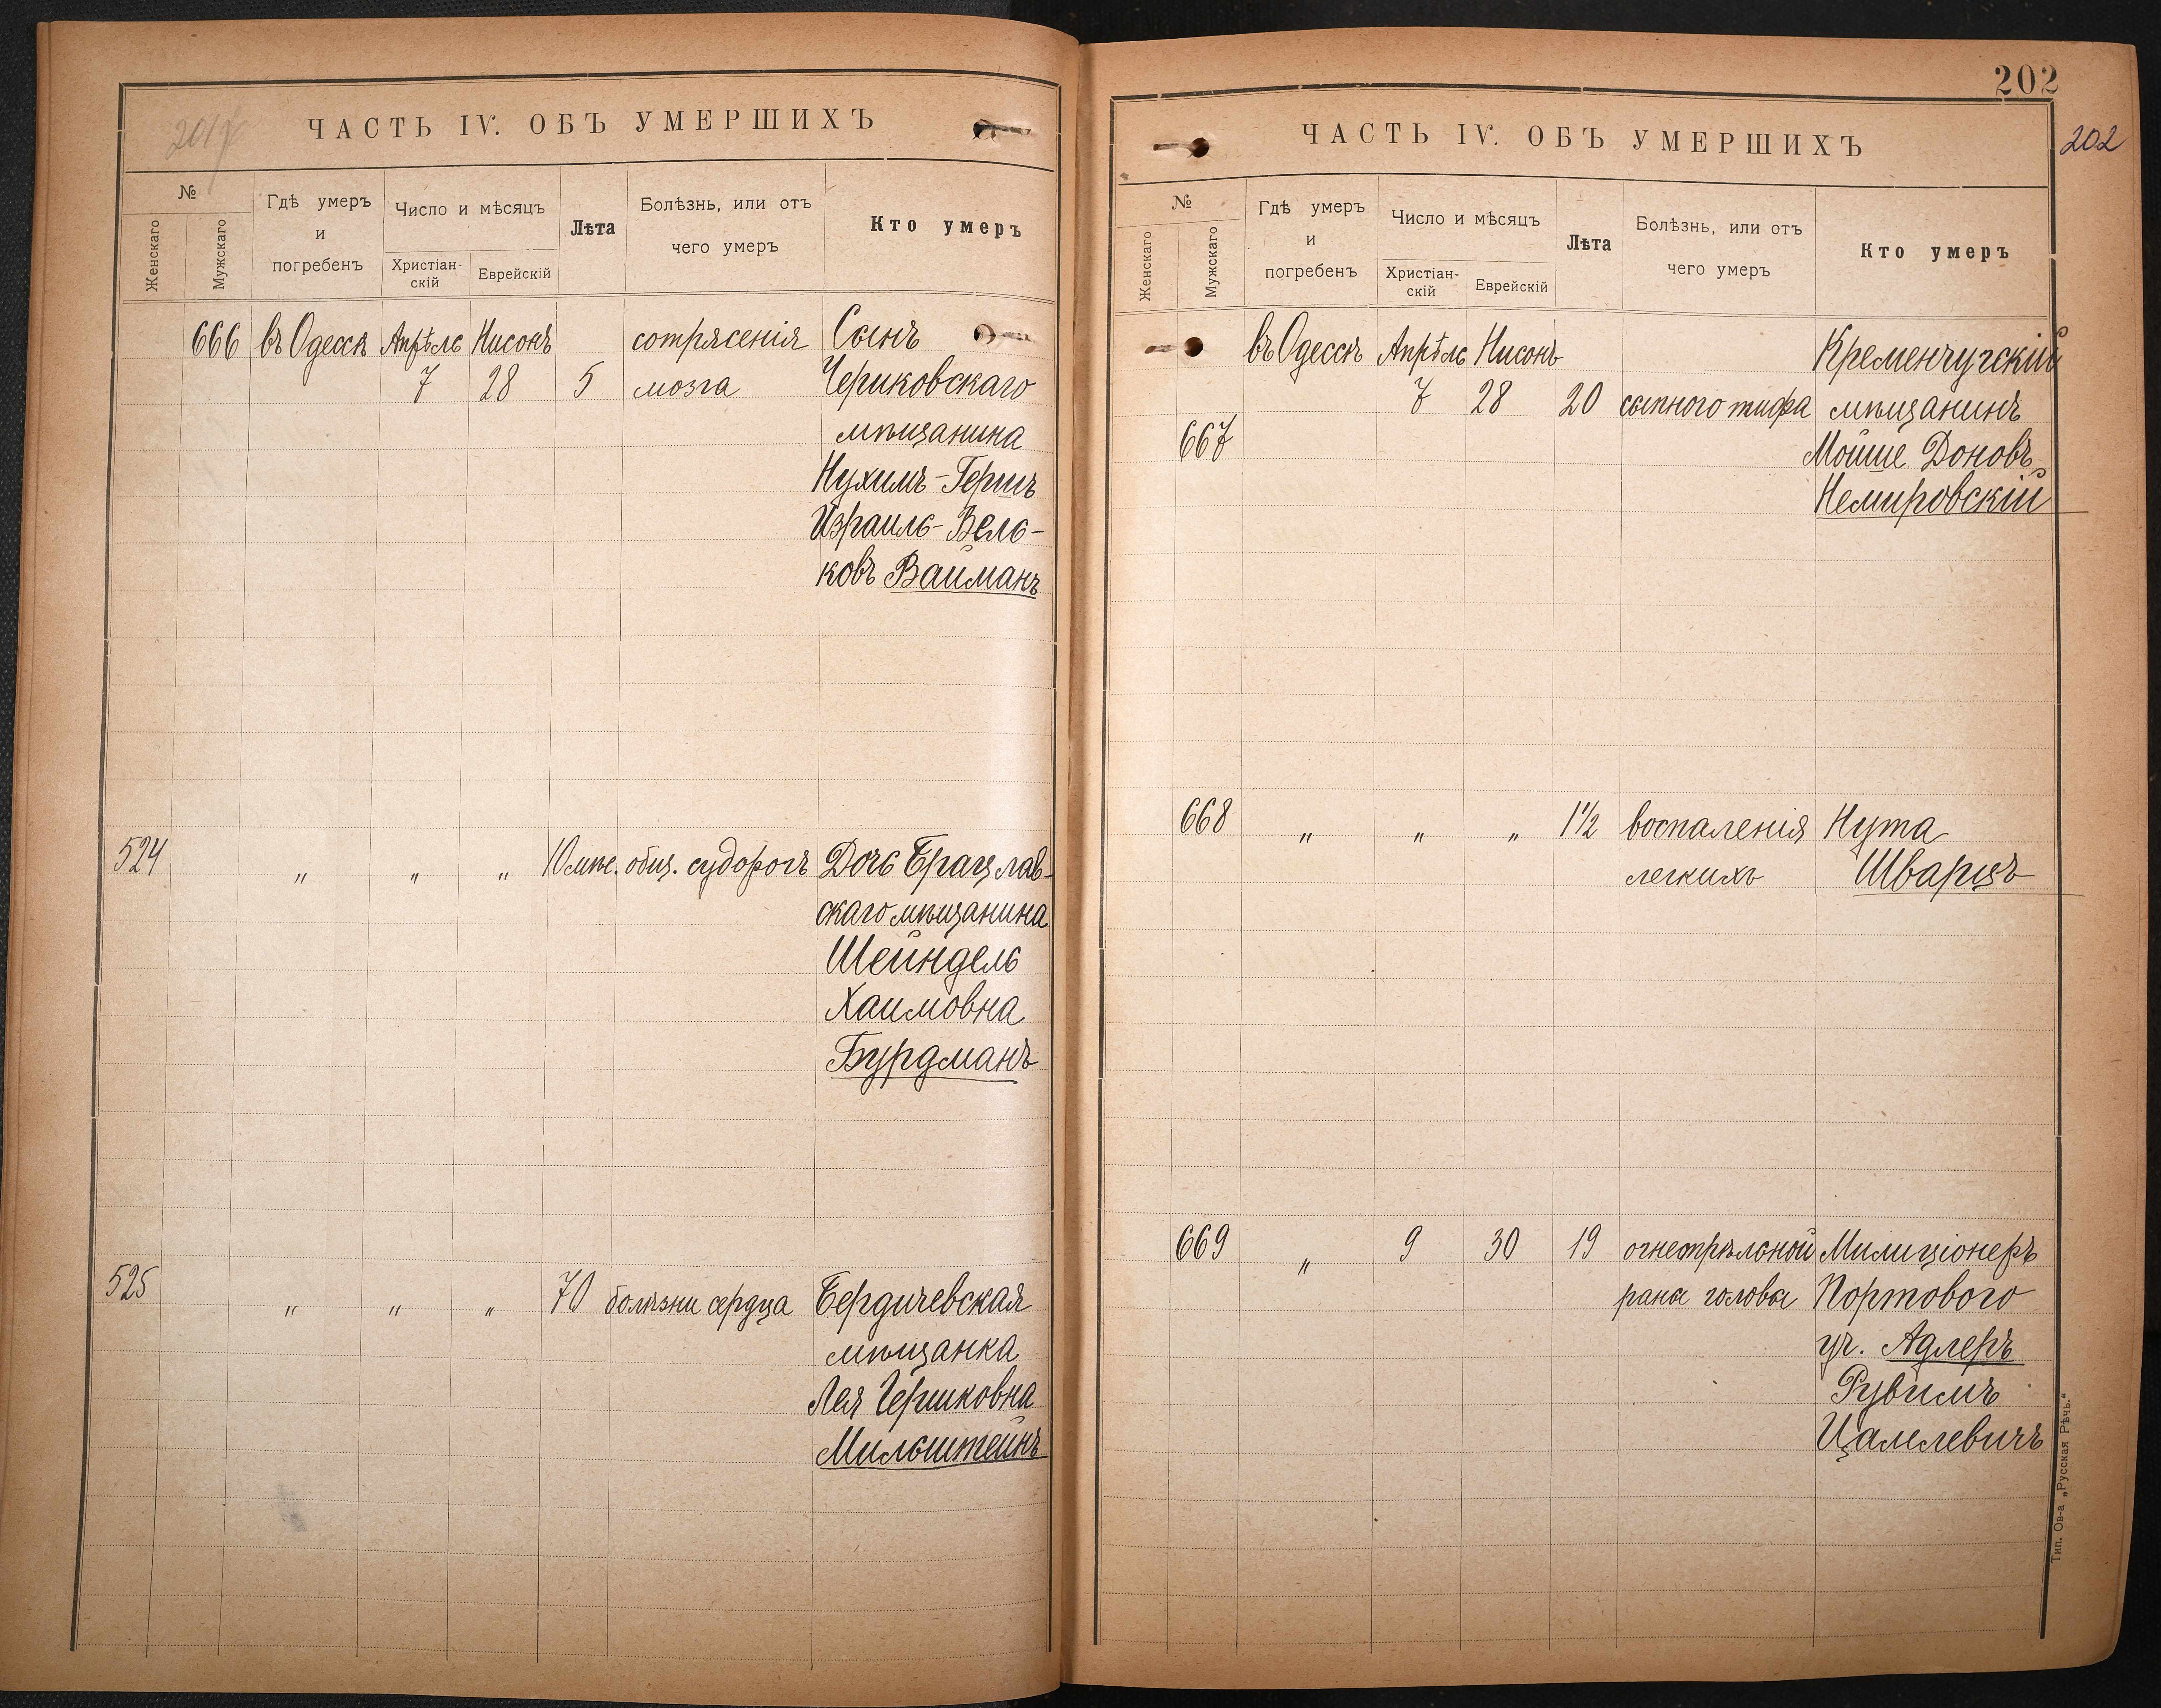 201
ЧАСТЬ IV. ОБЪ УМЕРШИХЪ
№
Женскаго
Мужскаго
Гдѣ умеръ
и
погребенъ
Число и мѣсяцъ
Христіан-
скій
Еврейскій
Лѣта
Болѣзнь, или отъ
чего умеръ
Кто умеръ
666 въ Одессѣ Апрѣль Нисонъ сотрясенія Сынъ
7 28 5 мозга Чериковскаго
мѣщанина
Нухимъ-Гершъ
Израиль-Вель-
ковъ Вайманъ
524 " " " 10 мѣс. общ. судорогъ Дочь Брацлав-
скаго мѣщанина
Шейндель
Хаимовна
Бурдманъ
525 " " " 70 болѣзни сердца Бердичевская
мѣщанка
Лея Гершковна
Мильштейнъ
202
202
ЧАСТЬ IV. ОБЪ УМЕРШИХЪ
№
Женскаго
Мужскаго
Гдѣ умеръ
и
погребенъ
Число и мѣсяцъ
Христіан-
скій
Еврейскій
Лѣта
Болѣзнь, или отъ
чего умеръ
Кто умеръ
въ Одессѣ Апрѣль Нисонъ Кременчугскій
7 28 20 сыпного тифа мѣщанинъ
667 Мойше Доновъ
Немировскій
668 " " " 1½ воспаленія Нута
легкихъ Шварцъ
669 " 9 30 19 огнестрѣльной Милиціонеръ
раны головы Портового
уч. Адлеръ
Рувимъ
Цалелевичъ
Тип. Ов-а „Русская Рѣчь."